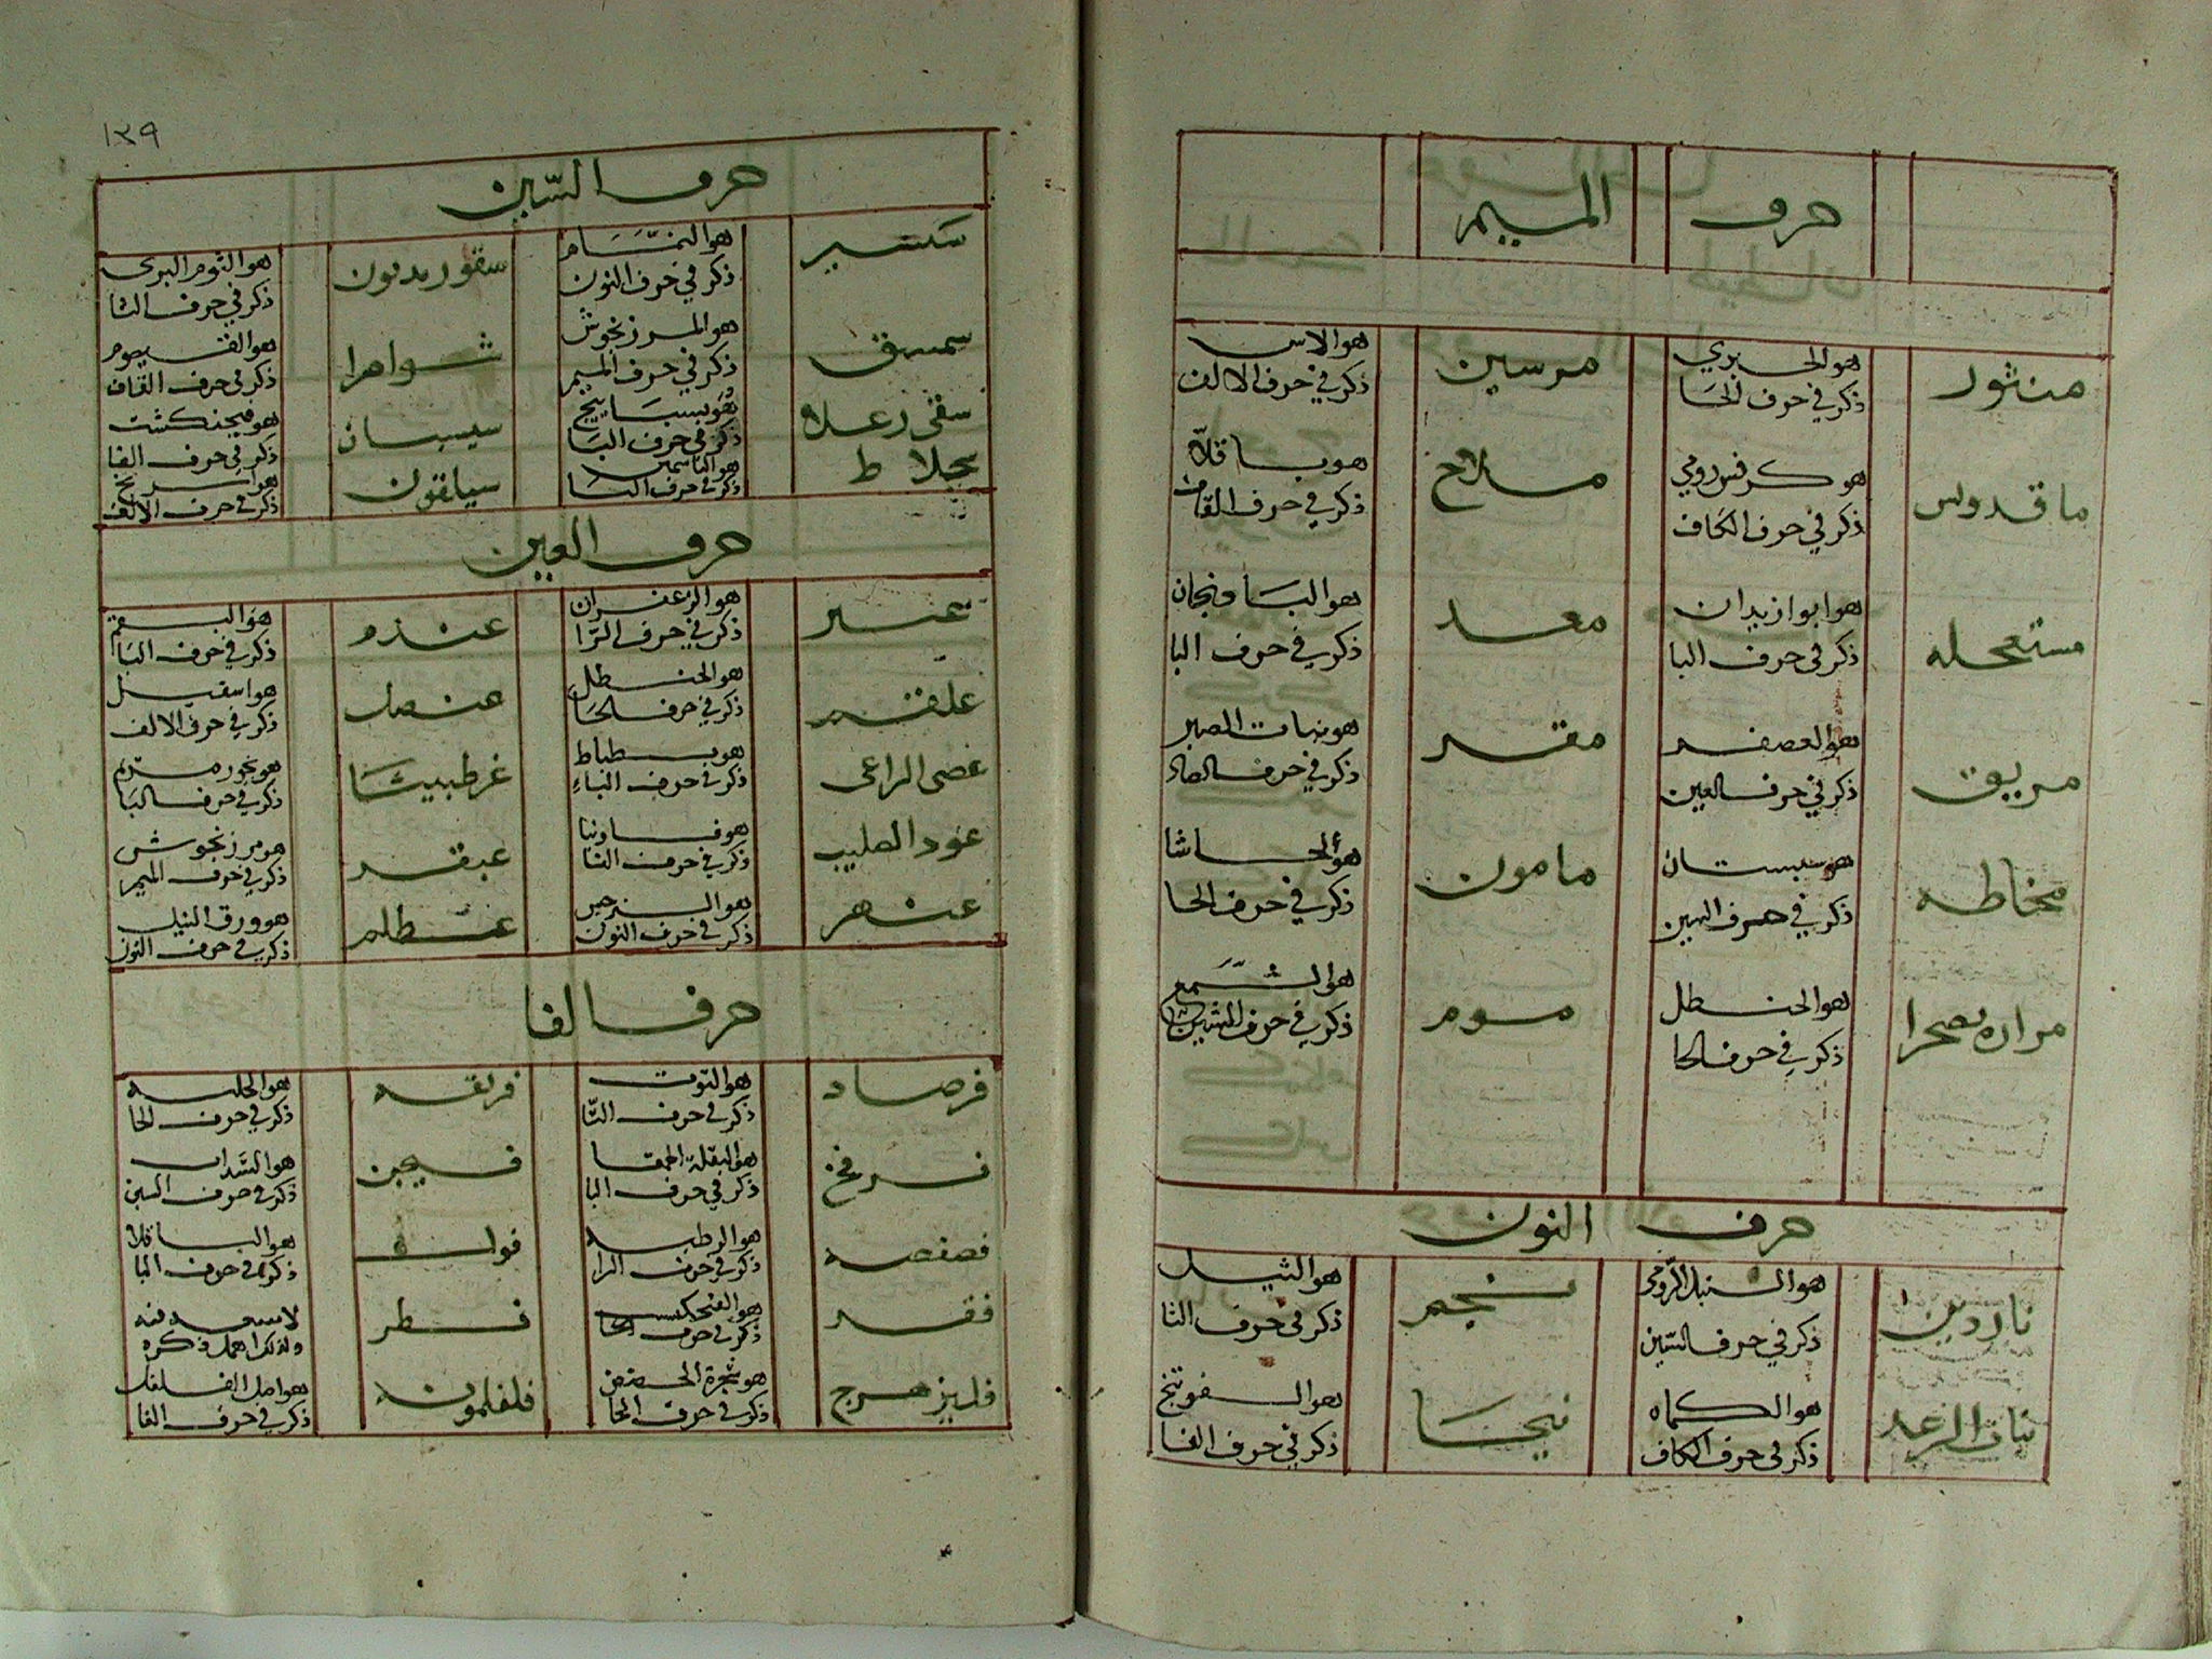 حرف الميم
منثور
هو الخيري
ذكر في حرف الخا
مرسين
هو الاس
ذكر في حرف الالف
ماقدونس
هو كرفس رومي
ذكر في حرف الكاف
ملاح
هو باقلاة
ذكر في حرف القاف
مستعجله
هو ابوا زيدان
ذكر في حرف البا
معد
هو الباذنجان
ذكر في حرف البا
مريق
هو العصفر
ذكر في حرف العين
مقر
هو نبات الصبر
ذكر في حرف الصاد
مخاطه
هو سبستان
ذكر في حرف السين
مامون
هو الحاشا
ذكر في حرف الحا
مراره صحرا
هو الحنطل
ذكر في حرف الحا
موم
هو الشمع
ذكر في حرف الشين
حرف النون
ناردين
هو السنبل الرومي
ذكر في حرف السين
نجم
هو الثيل
ذكر في حرف الثا
نبات الرعد
هو الكماه
ذكر في حرف الكاف
هو الفوتنج
ذكر في حرف الفا
١٣٩
حرف السين
هو النمام
ذكر في حرف النون
هو الثوم البرى
ذكر في حرف الثا
سمسق
هو المرزنجوش
ذكر في حرف الميم
شواصرا
هو القيصوم
ذكر في حرف القاف
هو بسبايج
ذكر في حرف البا
سيسبان
هو فيجنكشت
ذكر في حرف الفا
سجلاط
هو الياسمين
ذكر في حرف اليا
سيلقون
هو اسرنج
ذكر في حرف الالف
حرف العين
عبير
هو الزعفران
ذكر في حرف الزا
عندم
هو البقم
ذكر في حرف البا
علقم
هو الحنطل
ذكر في حرف الحا
عنصل
هو اسقيل
ذكر في حرف الالف
عصى الراعى
هو بطباط
ذكر في حرف الباء
عرطنيثا
هو بخور مريم
ذكر في حرف البا
عود الصليب
هو فاونيا
ذكر في حرف الفا
عبقر
هو مرزنجوش
ذكر في حرف الميم
عبهر
هو النرجس
ذكر في حرف النون
عظلم
هو ورق النيل
ذكر في حرف النون
حرف الفا
فرصاد
هو التوت
ذكر في حرف التا
فريقه
هو الحلبه
ذكر في حرف الحا
فرفخ
هو البقلة الحمقا
ذكر في حرف البا
فيجن
هو السداب
ذكر في حرف السين
فصفصه
هو الرطبه
ذكر في حرف الرا
فول
هو الباقلا
ذكر في حرف البا
فقد
ذكر في حرف
فطر
ولذلك اهمل ذكره
فليزهرج
هو شجرة الحضض
ذكر في حرف الحا
فلفلمويه
هو اصل الفلفل
ذكر في حرف الفا